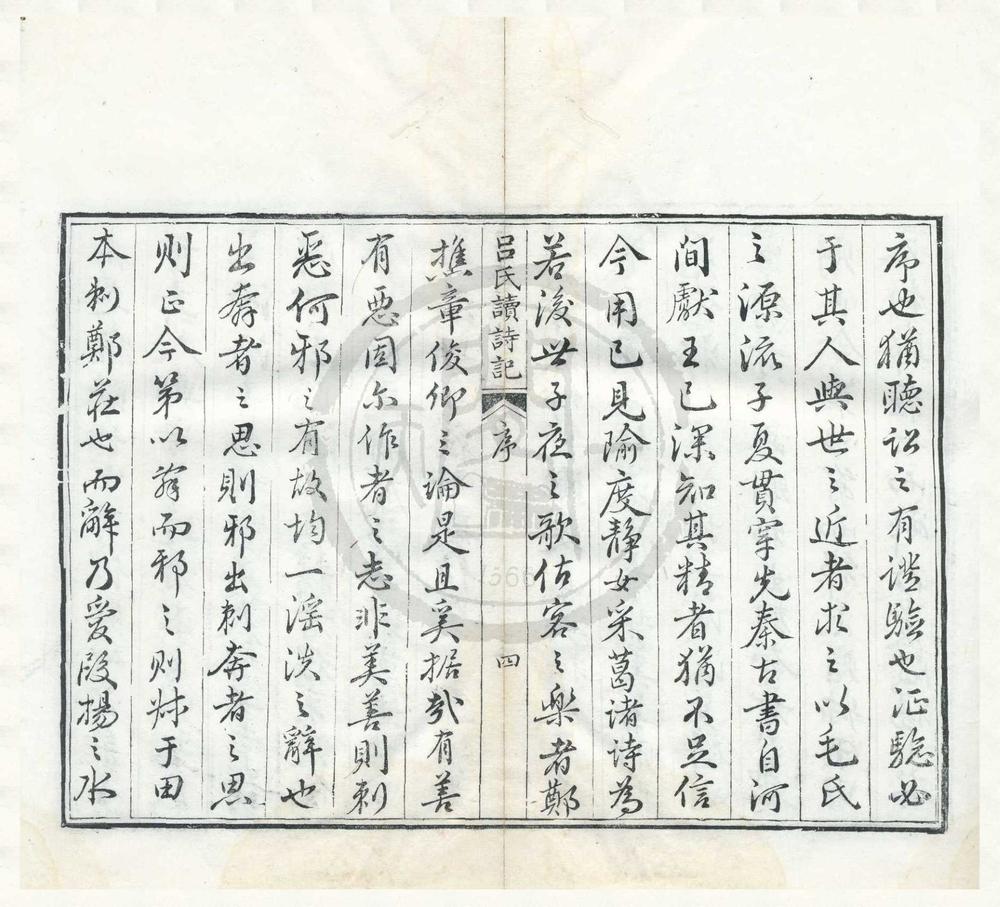 序也猶聽訟之有證驗也証驗必
于其人與世之近者求之以毛氏
之源流子夏貫穿先秦古書自河
間獻王已深知其精者猶不足信
今用已見隃度靜女采葛諸詩為
若後世子夜之歌估客之樂者鄭
吕氏讀詩記
序
四
樵章俊卿之論是且奚据哉有善
有惡固尓作者之志非美善則刺
惡何邪之有故均一淫泆之辭也
出奔者之思則邪出刺奔者之思
则正今第以辭而邪之则叔于田
本刺鄭莊也而辭乃愛段揚之水